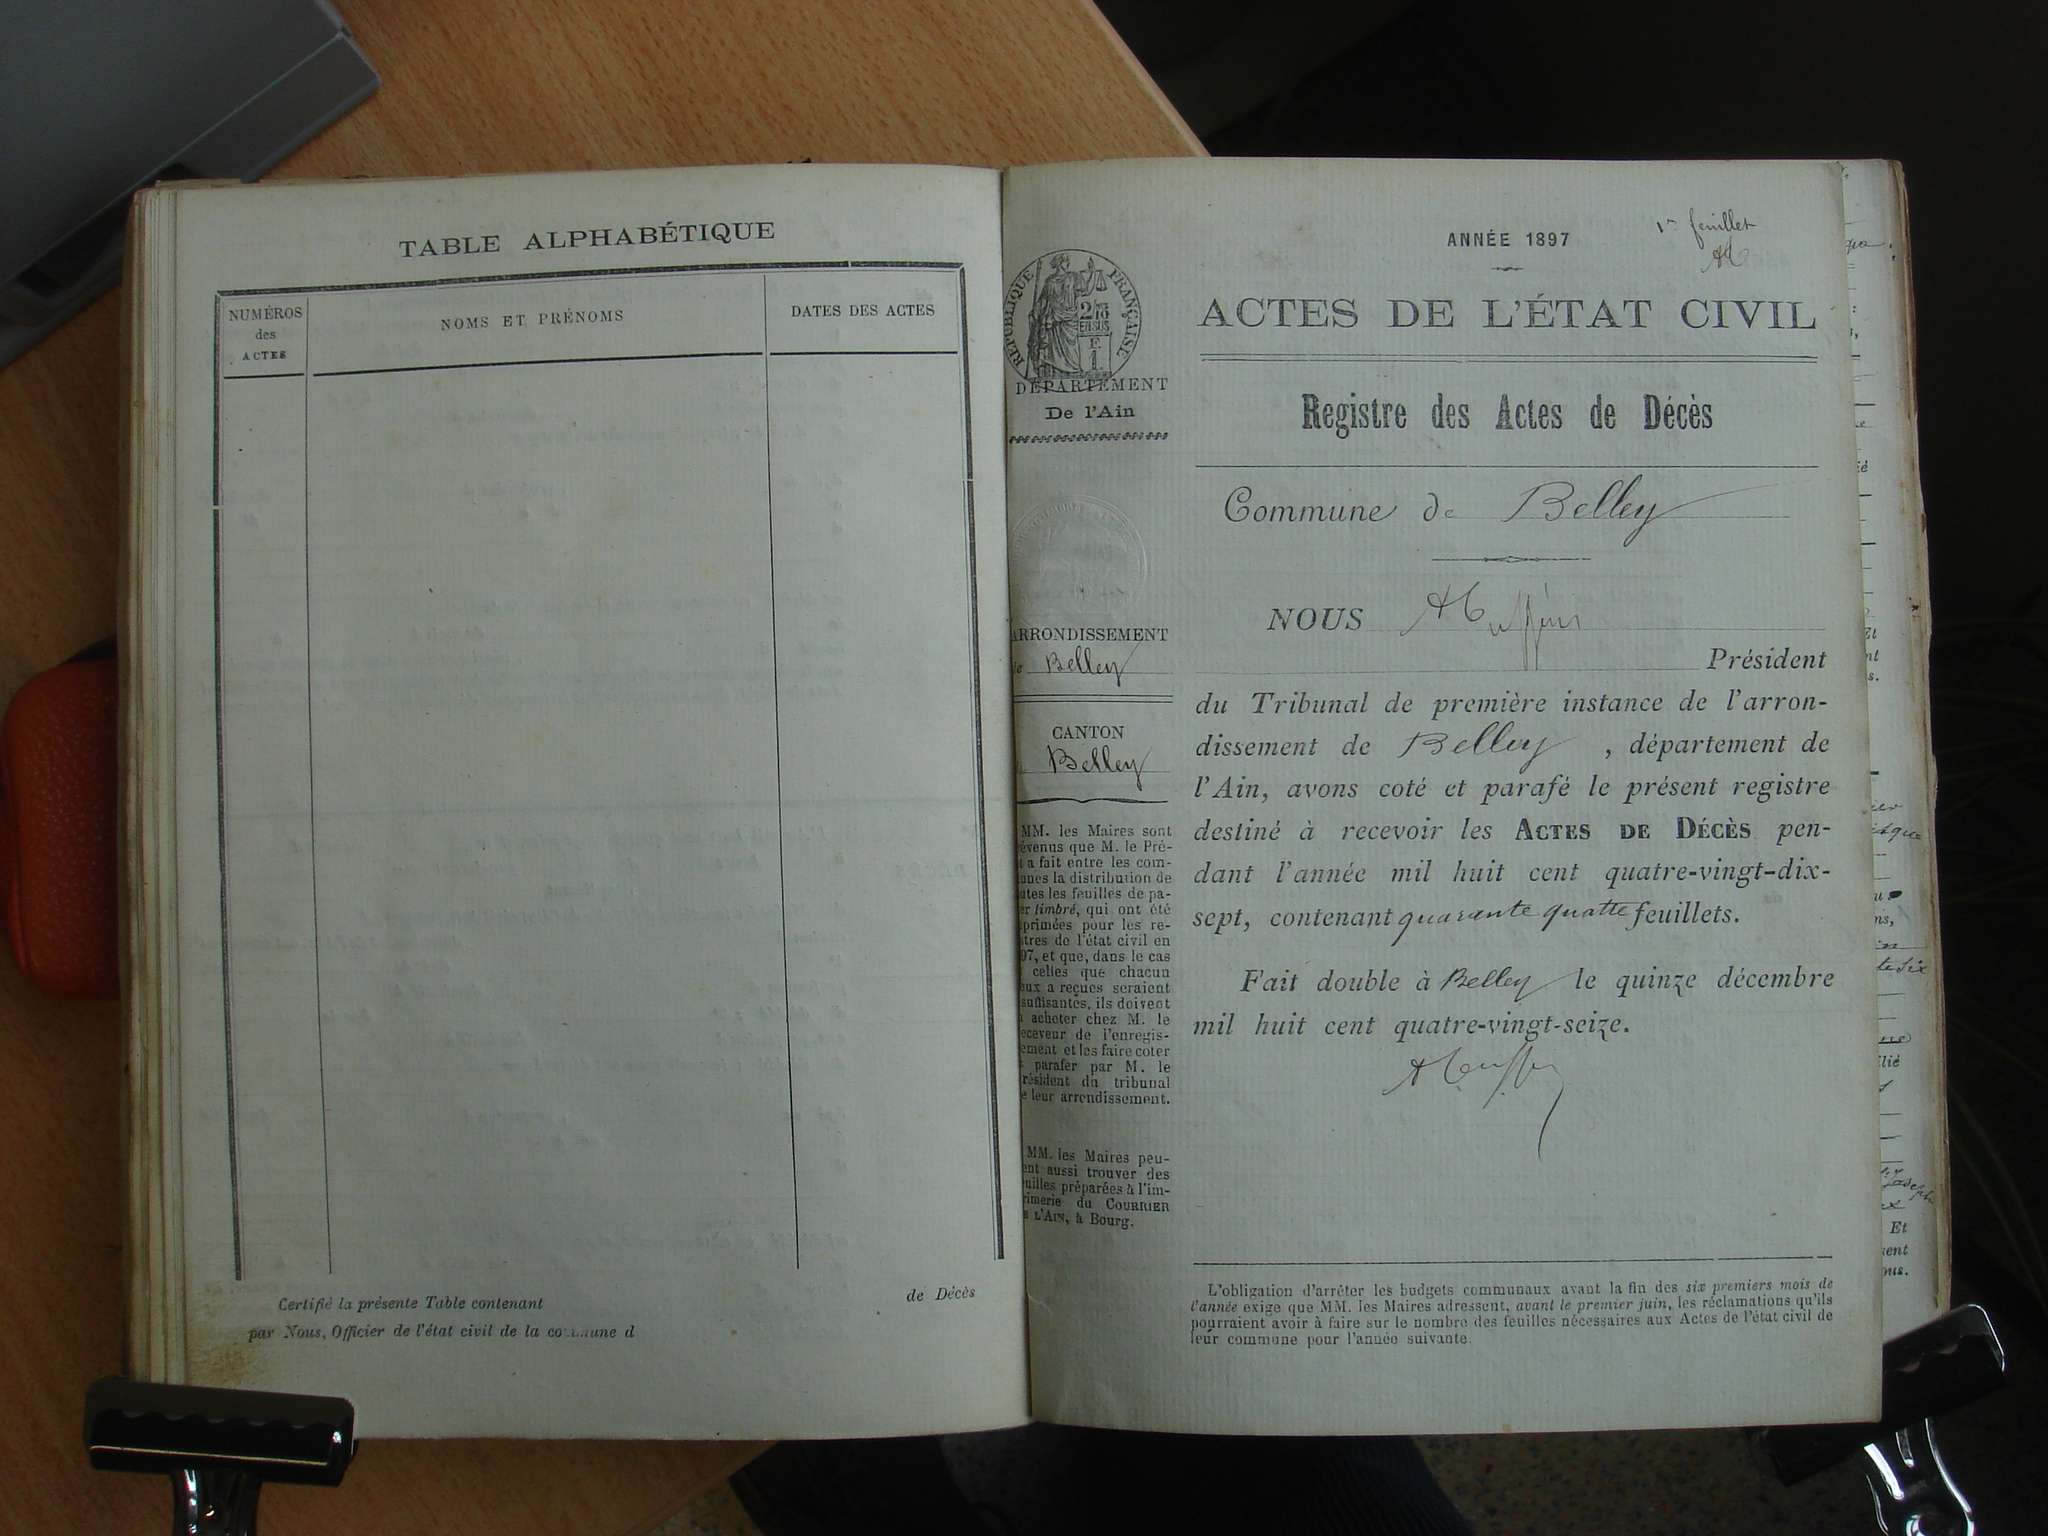 TABLE ALPHABÉTIQUE
NUMÉROS
des
ACTES
NOMS ET PRÉNOMS
DATES DES ACTES
Certifié la présente Table contenant
de Décès
par Nous, Officier de l'état civil de la commune d
RÉPUBLIQUE FRANÇAISE
DÉPARTEMENT
De l'Ain
ARRONDISSEMENT
de Belley
CANTON
Belley
MM. les Maires sont
évenus que M. le Pré-
t a fait entre les com-
unes la distribution de
utes les feuilles de pa-
er timbré, qui ont été
primées pour les re-
tres de l'état civil en
97, et que, dans le cas
celles que chacun
eux a reçues seraient
suffisantes, ils doivent
acheter chez M. le
eceveur de l'enregis-
ement et les faire coter
parafer par M. le
résident du tribunal
e leur arrondissement.
MM. les Maires peu-
ent aussi trouver des
uilles préparées à l'im-
rimerie du COURRIER
DE L'AIN, à Bourg.
1er feuillet
ANNÉE 1897
ACTES DE L'ÉTAT CIVIL
Registre des Actes de Décès
Commune de Belley
NOUS
Président
du Tribunal de première instance de l'arron-
dissement de Belley, département de
l'Ain, avons coté et parafé le présent registre
destiné à recevoir les ACTES DE DÉCÈS pen-
dant l'année mil huit cent quatre-vingt-dix-
sept, contenant quarante quatre feuillets.
Fait double à Belley le quinze décembre
mil huit cent quatre-vingt-seize.
L'obligation d'arrêter les budgets communaux avant la fin des six premiers mois de
l'année exige que MM. les Maires adressent, avant le premier juin, les réclamations qu'ils
pourraient avoir à faire sur le nombre des feuilles nécessaires aux Actes de l'état civil de
leur commune pour l'année suivante.